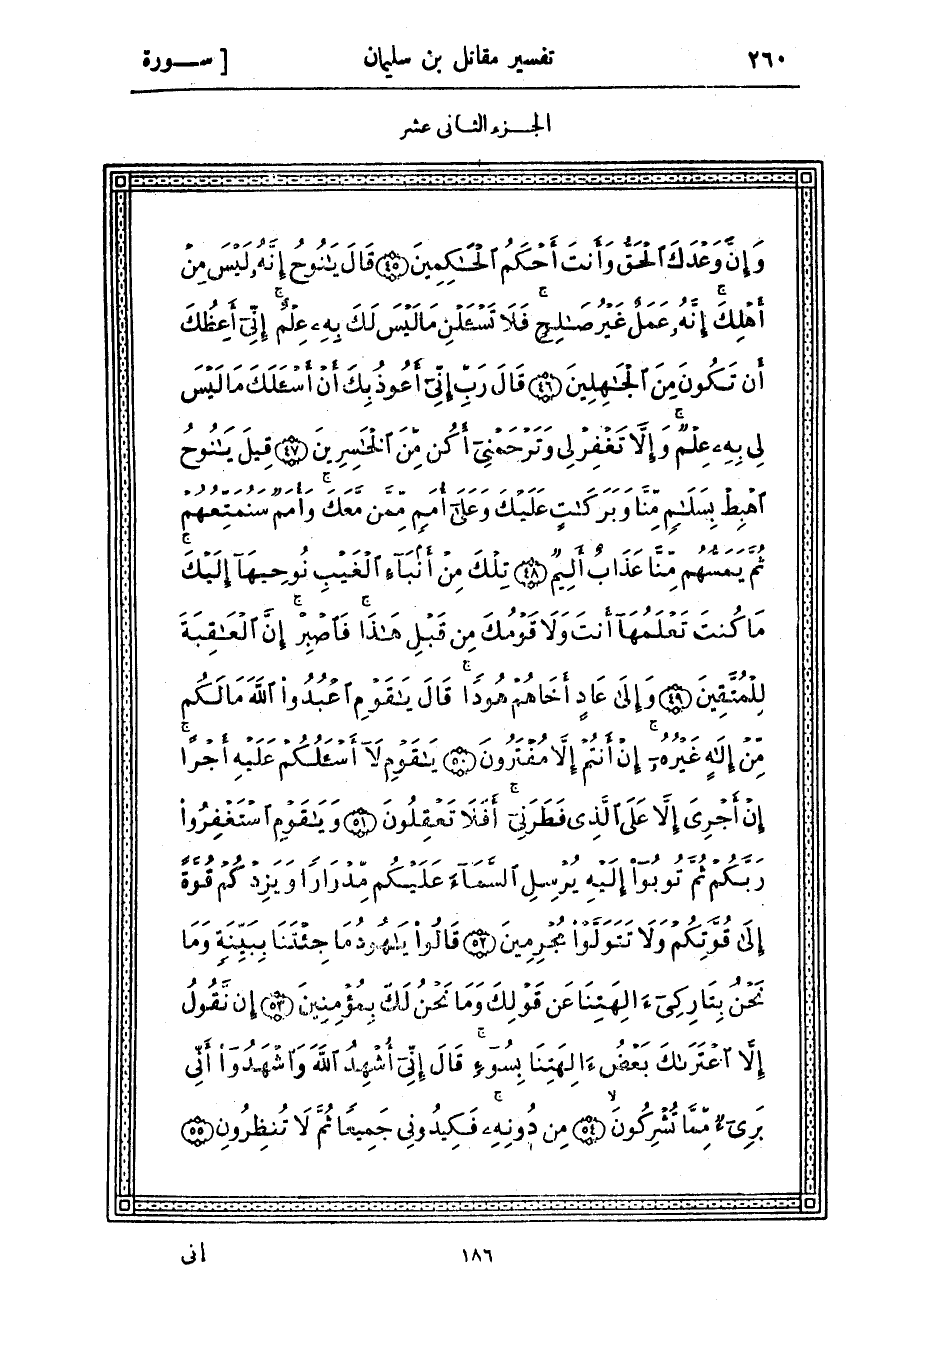 ٢٦٠ تفسير مقاتل بن سليمان [ ســـورة
الجـــزء الثانى عشر
وَإِنَّ وَعْدَكَ ٱلْحَقُّ وَأَنتَ أَحْكَمُ ٱلْحَٰكِمِينَ ﴿٤٥﴾ قَالَ يَٰنُوحُ إِنَّهُۥ لَيْسَ مِنْ
أَهْلِكَۖ إِنَّهُۥ عَمَلٌ غَيْرُ صَٰلِحٍۖ فَلَا تَسْـَٔلْنِ مَا لَيْسَ لَكَ بِهِۦ عِلْمٌۖ إِنِّىٓ أَعِظُكَ
أَن تَكُونَ مِنَ ٱلْجَٰهِلِينَ ﴿٤٦﴾ قَالَ رَبِّ إِنِّىٓ أَعُوذُ بِكَ أَنْ أَسْـَٔلَكَ مَا لَيْسَ
لِى بِهِۦ عِلْمٌۖ وَإِلَّا تَغْفِرْ لِى وَتَرْحَمْنِىٓ أَكُن مِّنَ ٱلْخَٰسِرِينَ ﴿٤٧﴾ قِيلَ يَٰنُوحُ
ٱهْبِطْ بِسَلَٰمٍ مِّنَّا وَبَرَكَٰتٍ عَلَيْكَ وَعَلَىٰٓ أُمَمٍ مِّمَّن مَّعَكَۚ وَأُمَمٌ سَنُمَتِّعُهُمْ
ثُمَّ يَمَسُّهُم مِّنَّا عَذَابٌ أَلِيمٌ ﴿٤٨﴾ تِلْكَ مِنْ أَنۢبَآءِ ٱلْغَيْبِ نُوحِيهَآ إِلَيْكَۖ
مَا كُنتَ تَعْلَمُهَآ أَنتَ وَلَا قَوْمُكَ مِن قَبْلِ هَٰذَاۖ فَٱصْبِرْۖ إِنَّ ٱلْعَٰقِبَةَ
لِلْمُتَّقِينَ ﴿٤٩﴾ وَإِلَىٰ عَادٍ أَخَاهُمْ هُودًاۚ قَالَ يَٰقَوْمِ ٱعْبُدُوا۟ ٱللَّهَ مَا لَكُم
مِّنْ إِلَٰهٍ غَيْرُهُۥٓۖ إِنْ أَنتُمْ إِلَّا مُفْتَرُونَ ﴿٥٠﴾ يَٰقَوْمِ لَآ أَسْـَٔلُكُمْ عَلَيْهِ أَجْرًاۖ
إِنْ أَجْرِىَ إِلَّا عَلَى ٱلَّذِى فَطَرَنِىٓۚ أَفَلَا تَعْقِلُونَ ﴿٥١﴾ وَيَٰقَوْمِ ٱسْتَغْفِرُوا۟
رَبَّكُمْ ثُمَّ تُوبُوٓا۟ إِلَيْهِ يُرْسِلِ ٱلسَّمَآءَ عَلَيْكُم مِّدْرَارًا وَيَزِدْكُمْ قُوَّةً
إِلَىٰ قُوَّتِكُمْ وَلَا تَتَوَلَّوْا۟ مُجْرِمِينَ ﴿٥٢﴾ قَالُوا۟ يَٰهُودُ مَا جِئْتَنَا بِبَيِّنَةٍ وَمَا
نَحْنُ بِتَارِكِىٓ ءَالِهَتِنَا عَن قَوْلِكَ وَمَا نَحْنُ لَكَ بِمُؤْمِنِينَ ﴿٥٣﴾ إِن نَّقُولُ
إِلَّا ٱعْتَرَىٰكَ بَعْضُ ءَالِهَتِنَا بِسُوٓءٍۗ قَالَ إِنِّىٓ أُشْهِدُ ٱللَّهَ وَٱشْهَدُوٓا۟ أَنِّى
بَرِىٓءٌ مِّمَّا تُشْرِكُونَ ﴿٥٤﴾ مِن دُونِهِۦۖ فَكِيدُونِى جَمِيعًا ثُمَّ لَا تُنظِرُونِ ﴿٥٥﴾
١٨٦ انى